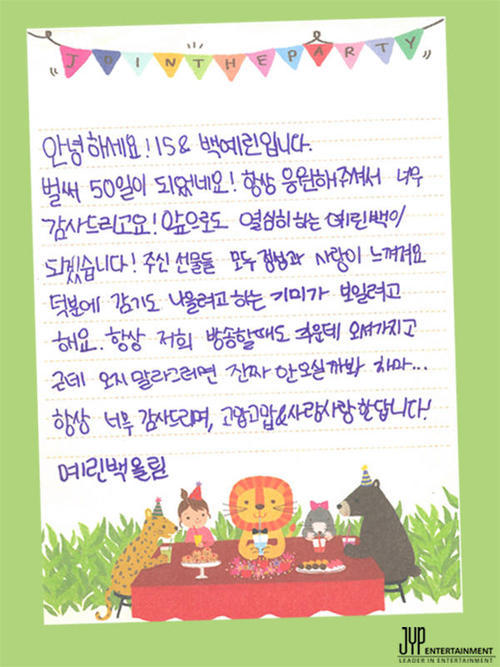 JOIN THE PARTY
안녕하세요! 15& 백예린입니다.
벌써 50일이 되었네요! 항상 응원해주셔서 너무
감사드리고요! 앞으로도 열심히하는 예린백이
되겠습니다! 주신 선물들 모두 정성과 사랑이 느껴져요
덕분에 감기도 나을려고 하는 기미가 보일려고
해요. 항상 저희 방송할때도 추운데 오셔가지고
근데 오지 말라그러면 진짜 안오실까봐 차마...
항상 너무 감사드리며, 고맙고맙&사랑사랑한답니다!
예린백올림
JYP ENTERTAINMENT
LEADER IN ENTERTAINMENT